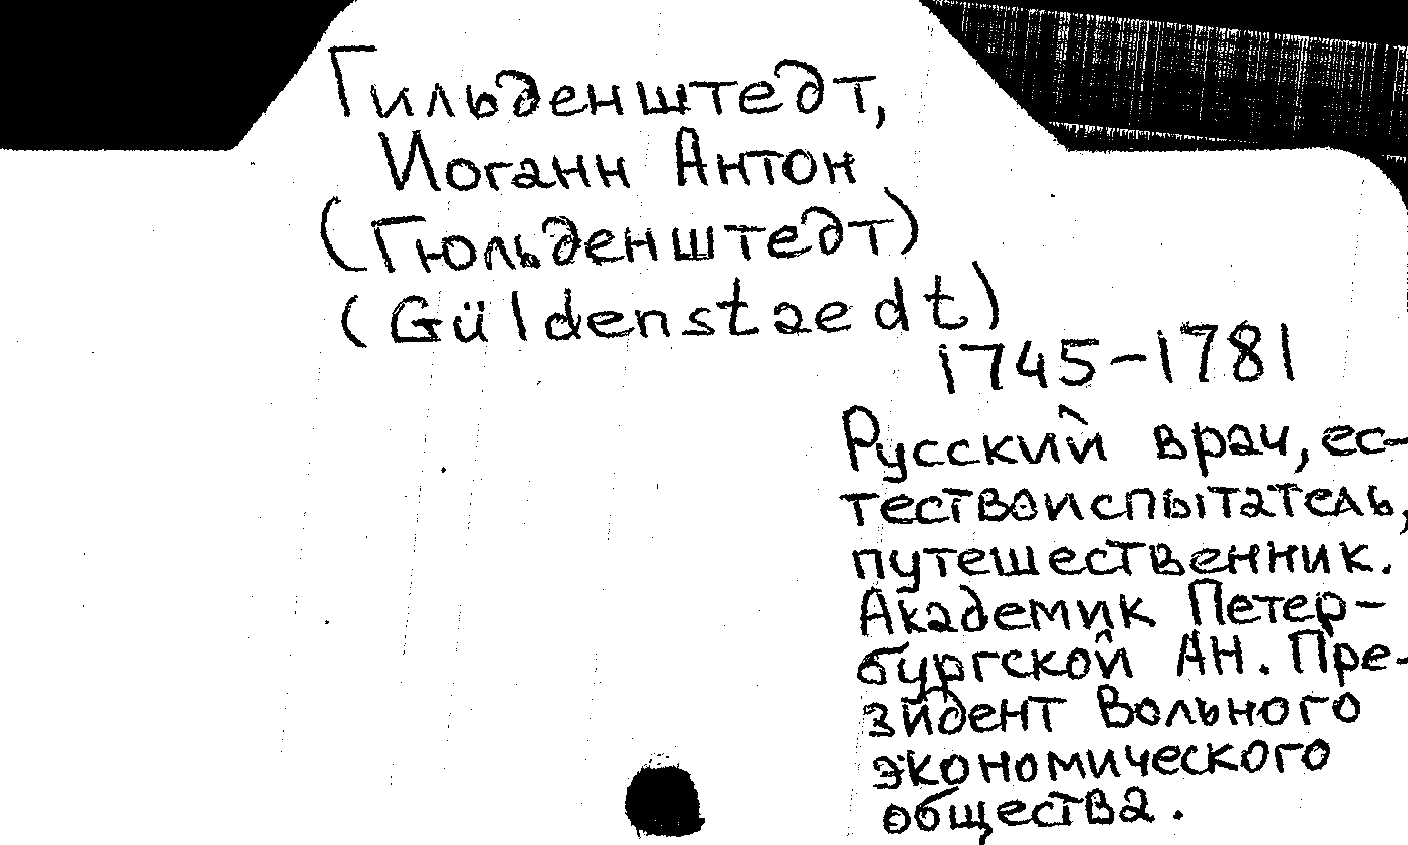 Гильденштедт,
Иоганн Антон
(Гюльденштедт)
(Güldenstaedt)
1745-1781
Русский врач, ес-
тествоиспытатель,
путешественник.
Академик Петер-
бургской АН. Пре-
зидент Вольного
экономического
общества.